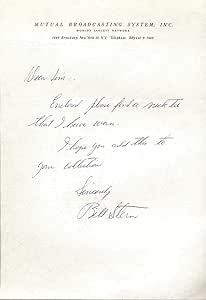 MUTUAL BROADCASTING SYSTEM, INC.
WORLD'S LARGEST NETWORK
1440 Broadway New York 18 N.Y. Telephone
Dear
Enclosed please find a necktie
that I have worn.
I hope you add this to
your collection
Sincerely
Bill Stern